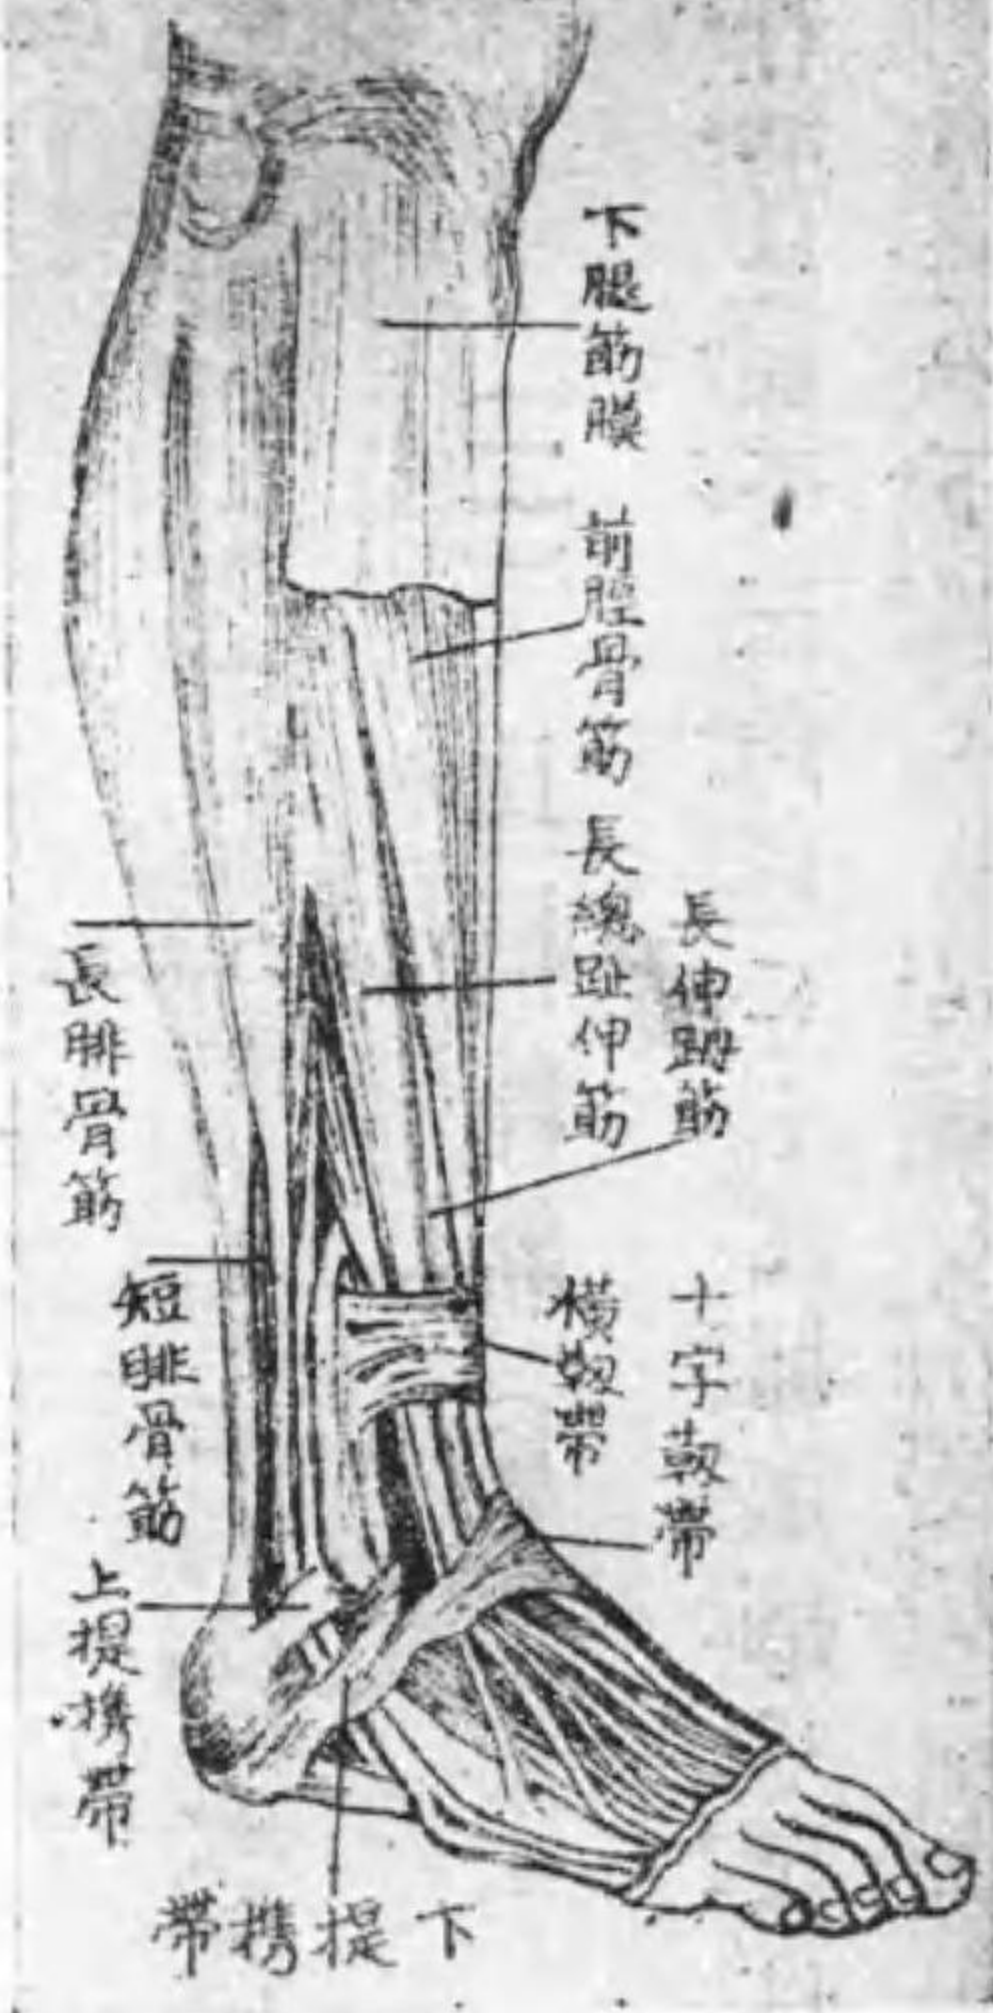 下腿筋膜
前脛骨筋
長總趾伸筋
長伸踇筋
長腓骨筋
短腓骨筋
横靱帶
十字靱帶
上提携帶
下提携帶